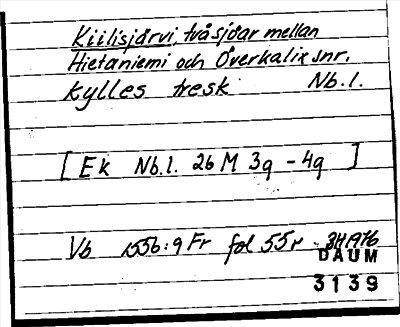 Kiilisjärvi, två sjöar mellan
Hietaniemi och Överkalix snr.
Kylles tresk Nb.l.
[Ek Nb.l. 26 M 3g - 4g ]
Vb 1556:9 Fr fol 55r
DAUM
3139